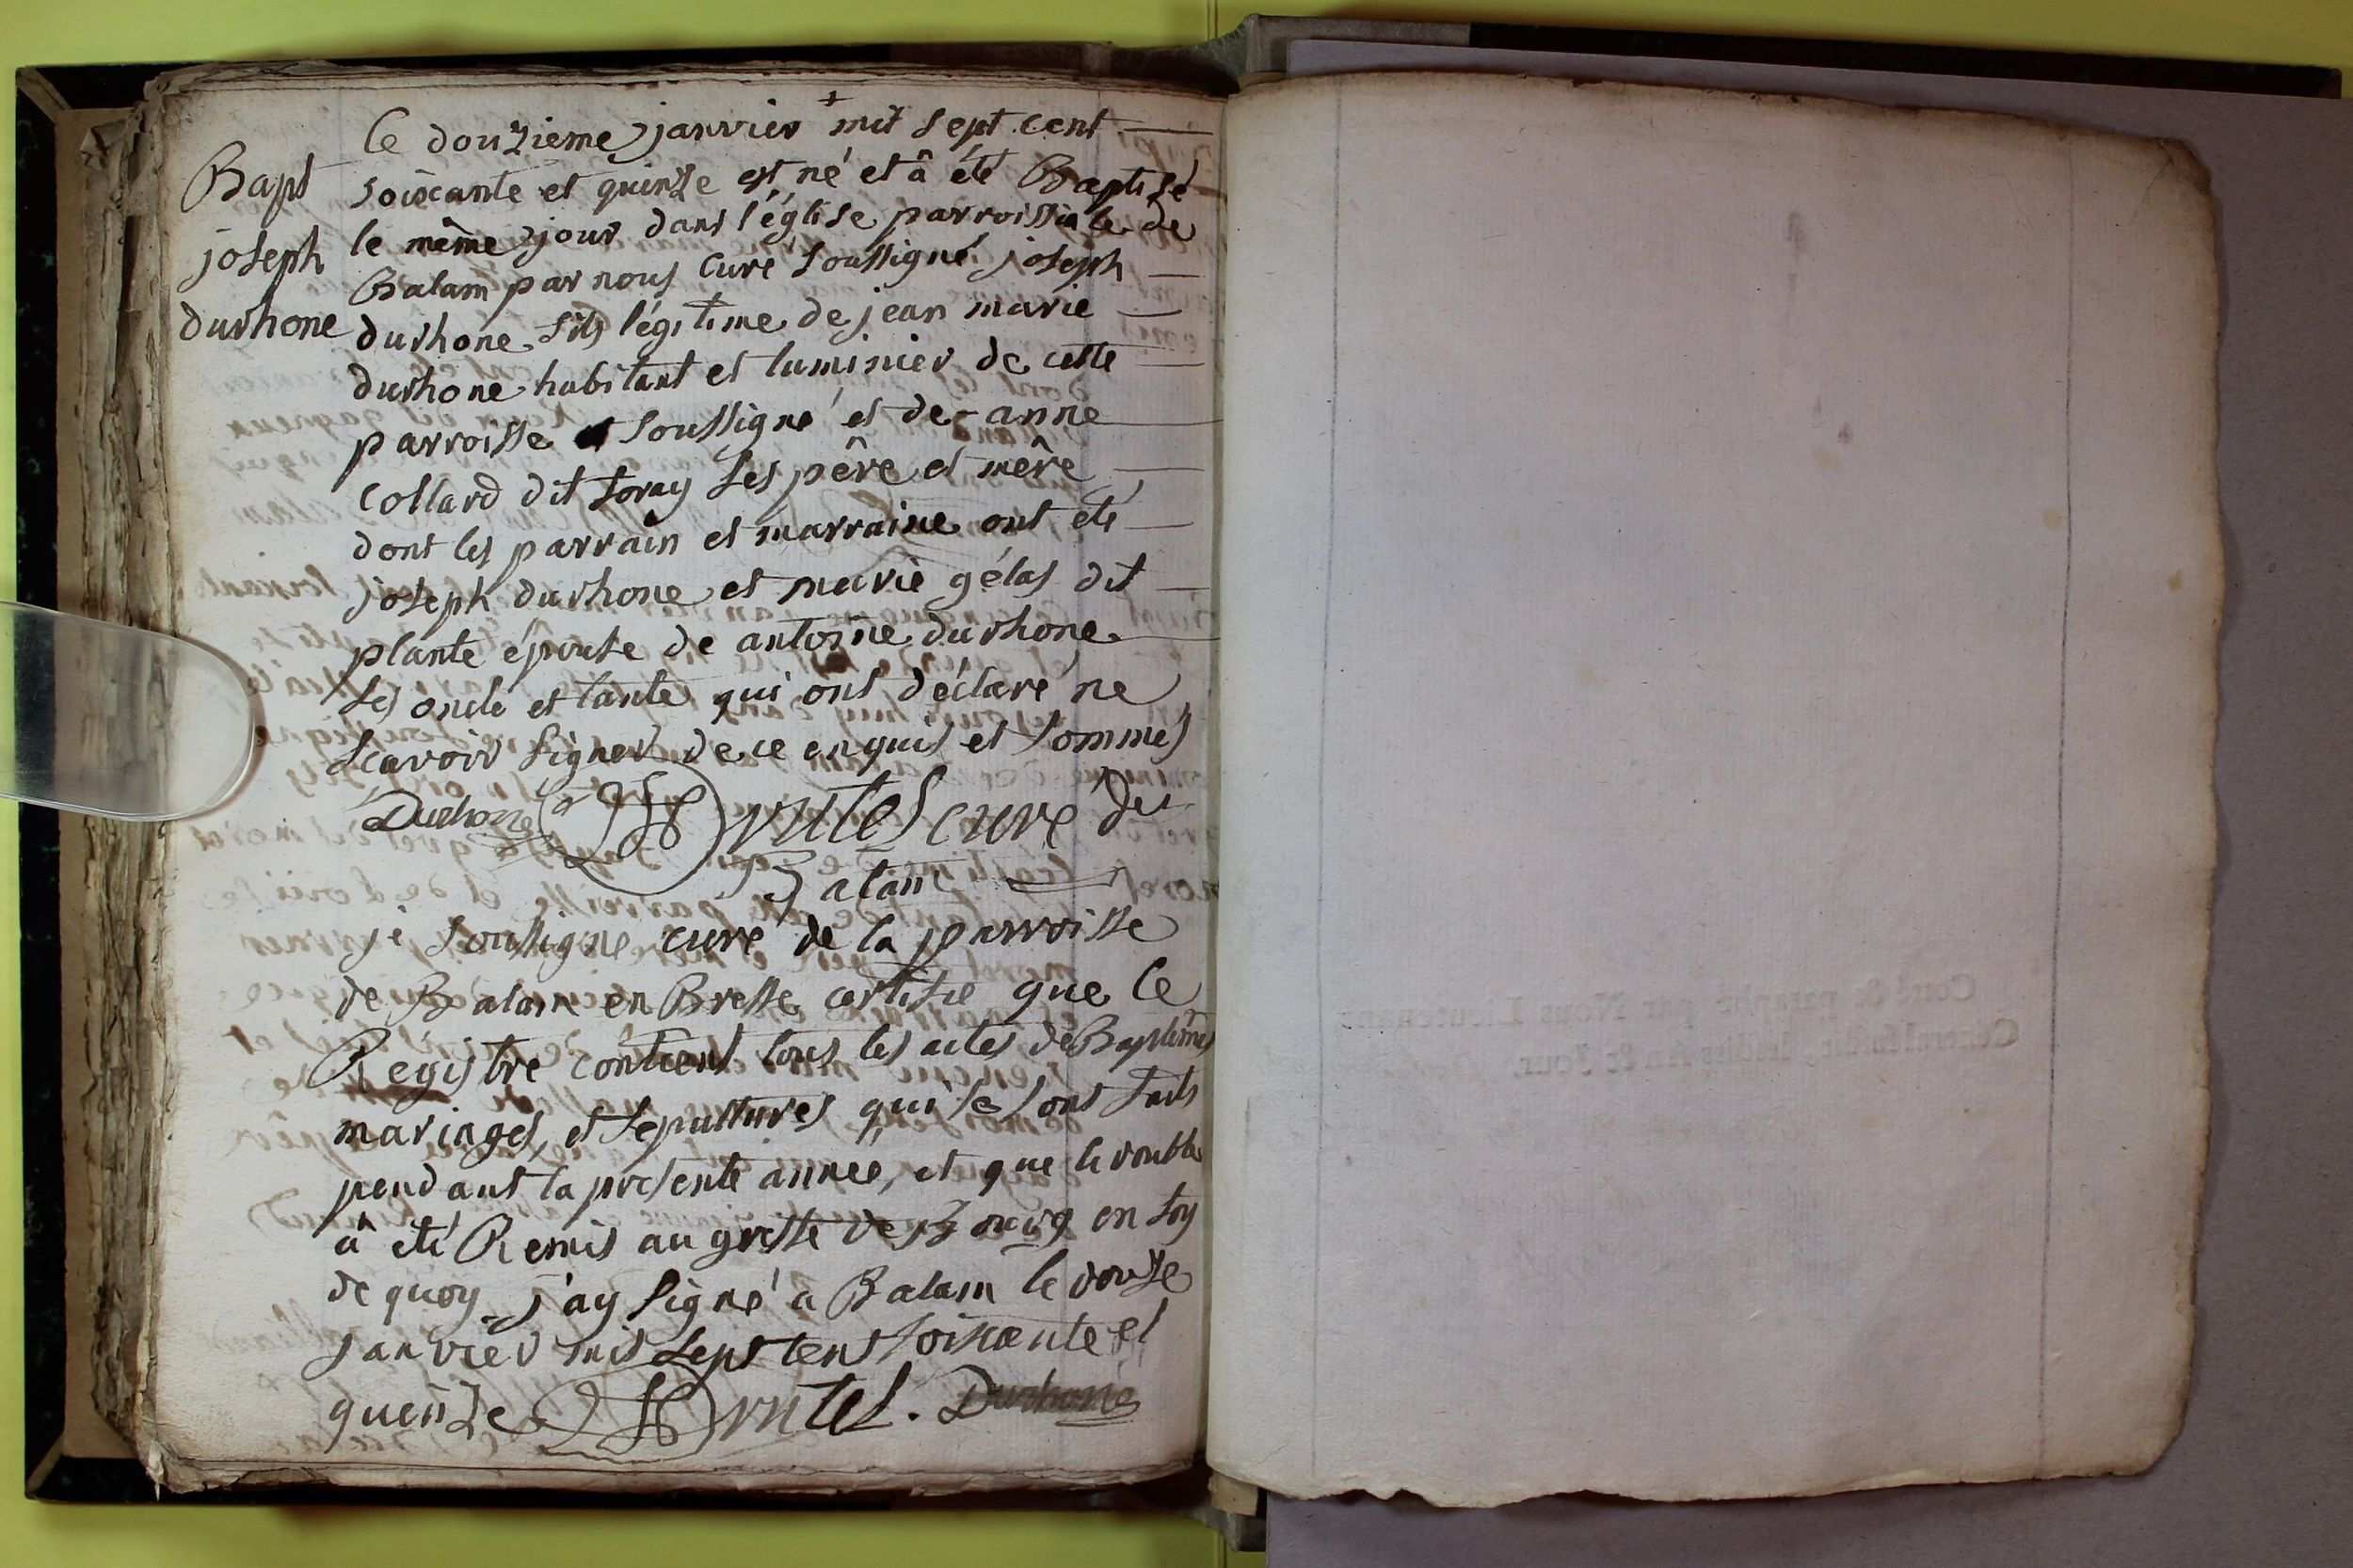 le douzieme janvier mil sept cent
Bapt
soixante et quinze est né et â été Baptisé
le même jour dans l'église parroissiale de
joseph
Balam par nous curé soussigné joseph
durhone
durhone fils légitime de jean marie
durhone habitant et luminier de cette
parroisse et soussigné et de anne
Collard dit foray ses pêre et mêre
dont les parrain et marraine ont été
joseph durhone et marie gélas dit
plante épouse de antoine durhone
ses oncle et tante qui ont déclaré ne
scavoir signer de ce enquis et sommés
Durhone curé de
Balam
je soussigné curé de la parroisse
de Balam en Bresse certifie que le
Registre contient tous les actes de Baptêmes
mariages, et sepultures qui se sont faits
pendant la presente année, et que le double
â été Remis au greffe de Bourg en foy
de quoy j'ay signé a Balam le douze
janvier mil sept cent soixante et
quinze Durhone